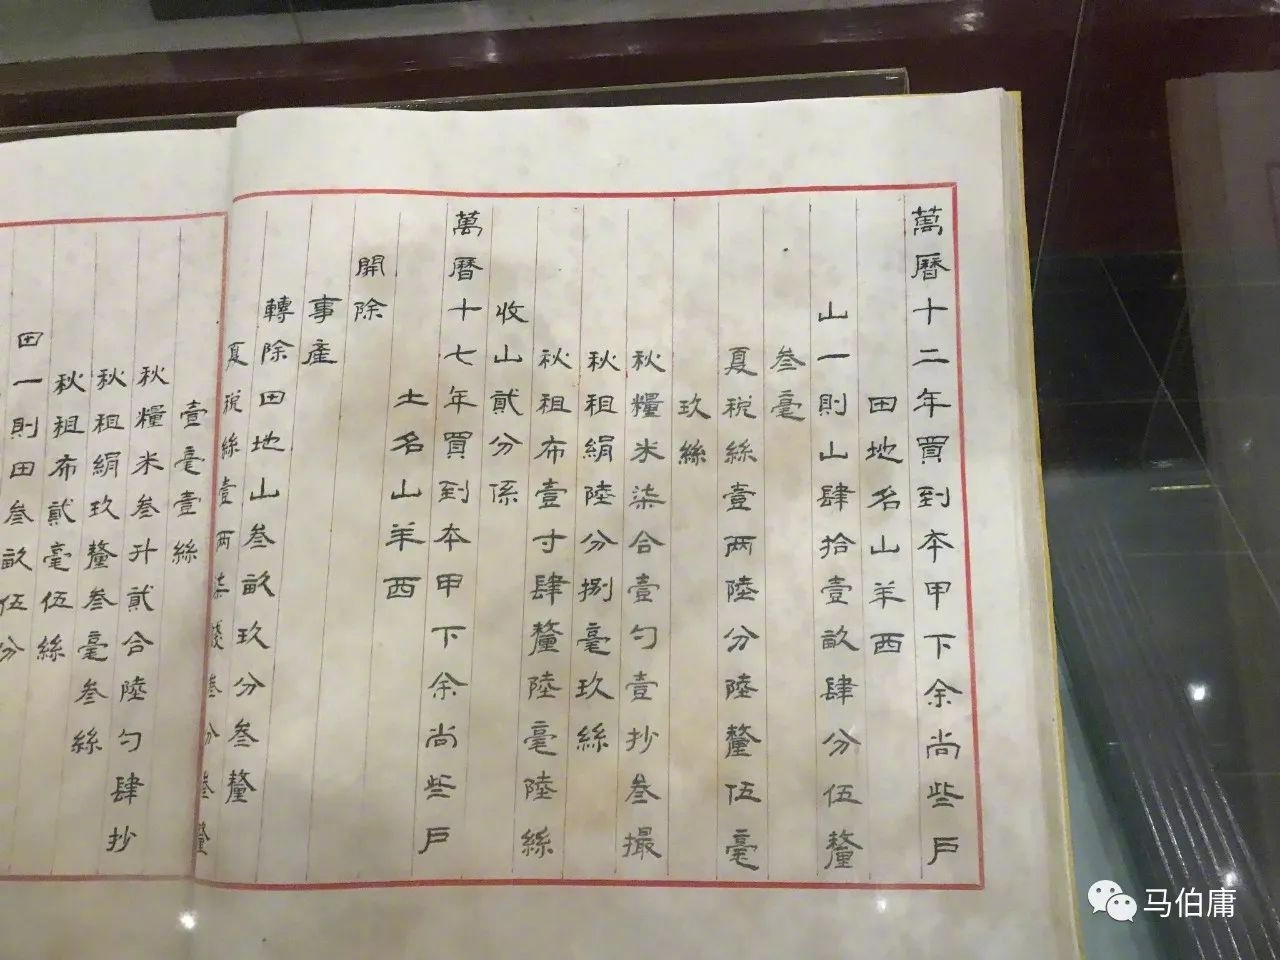 萬曆十二年買到本甲下余尚些戶
田地名山羊西
山一則山肆拾壹畝肆分伍釐
叁毫
夏稅絲壹两陸分陸釐伍毫
玖絲
秋糧米柒合壹勺壹抄叁撮
秋祖絹陸分捌毫玖絲
秋祖布壹寸肆釐陸毫陸絲
收山貳分係
萬曆十七年買到本甲下余尚些戶
土名山羊西
開除
事產
轉除田地山叁畝玖分叁釐
夏稅絲壹两柒錢叁分叁釐
壹毫壹絲
秋糧米叁升貳合陸勺肆抄
秋祖絹玖釐叁毫叁絲
秋祖布貳毫伍絲
田一則田叁畝伍分
马伯庸